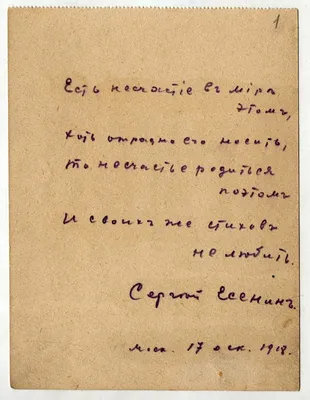 1
Есть несчастіе въ мірѣ
этомъ,
хоть отрадно его носить,
то несчастье родиться
поэтомъ
И своихъ же стиховъ
не любить.
Сергѣй Есенинъ.
Моск. 17 окт. 1918.